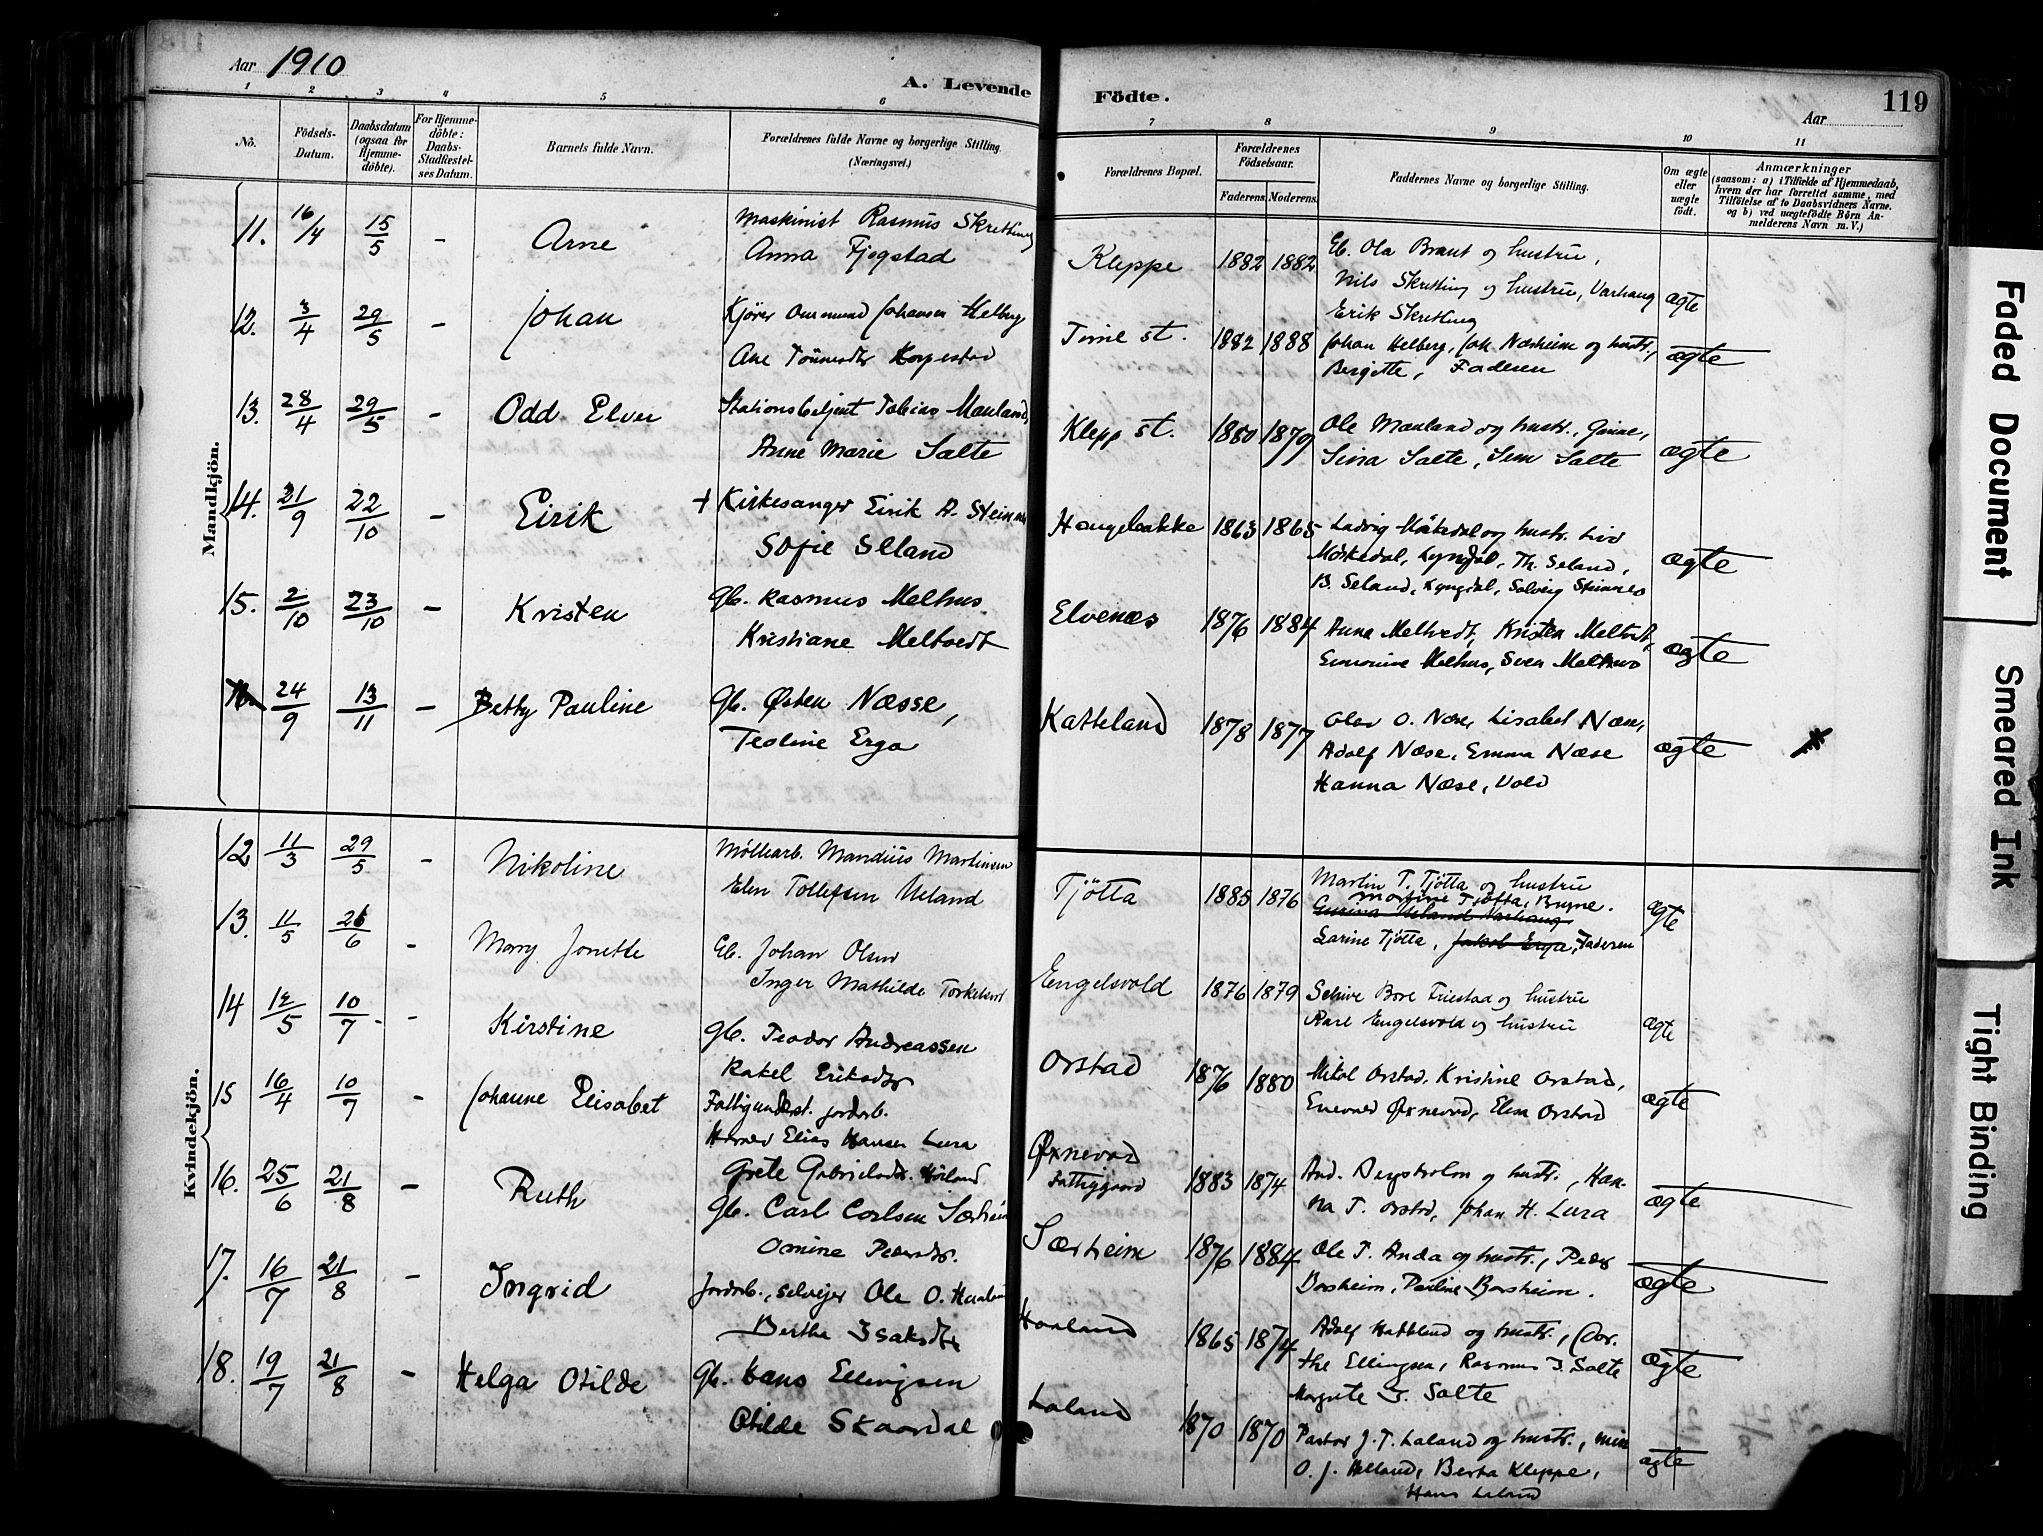 Aar 1910
A. Levende Födte.
119
Aar
1 2 3 4 5 6 7 8 9 10 11
No.
Födsels-
Datum.
Daabsdatum
(ogsaa for
Hjemme-
döbte).
For Hjemme-
döbte:
Daabs-
Stadfæstel-
ses Datum.
Barnets fulde Navn.
Forældrenes fulde Navne og borgerlige Stilling.
(Næringsvei.)
Forældrenes Bopæl.
Forældrenes
Födselsaar.
Faderens. Moderens.
Faddernes Navne og borgerlige Stilling.
Om ægte
eller
uægte
födt.
Anmærkninger
(saasom: a) i Tilfælde af Hjemmedaab,
hvem der har forrettet samme, med
Tilföielse af to Daabsvidners Navne.
og b) ved uægtefödte Börn An-
melderens Navn m. V.)
Mandkjön.
11. 16/4 15/5 - Arne
Maskinist Rasmus Skretting
Anna Fjogstad
Kleppe 1882 1882
Gb. Ola Braut og hustru,
Nils Skretting og hustru, Varhaug
Erik Skretting
ægte
12. 3/4 29/5 - Johan
Kjörer Ommund Johansen Helberg
Ane Tönnesdtr
Time st. 1882 1888
Johan Helberg, Joh. Næsheim og hustr.,
Bergitte, Faderen
ægte
13. 28/4 29/5 - Odd Elver
Stationsbetjent Tobias Mauland,
Anne Marie Salte
Klepp st. 1880 1879
Ole Mauland og hustr.,
Sina Salte, Sem Salte
ægte
14. 21/9 22/10 - Eirik
+ Kirkesanger Eirik A. Steinnes
Sofie Seland
Haugebakke 1863 1865
Ladvig og hustr. Liv
Lyngdal, Th. Seland,
B. Seland, Lyngdal, Solveig Steinnes
ægte
15. 2/10 23/10 - Kristen
Gb. Rasmus Melhus.
Kristiane Meltvedt
Elvenæs 1876 1884
Anna Meltvedt, Kristen Meltvedt,
Melhus, Sven Melhus
ægte
24/9 13/11 - Betty Pauline
Gb. Østen Næsse,
Teoline Erga
Katteland 1878 1877
Olav O. Næse, Lisabet Næse,
Adolf Næse, Emma Næse
Hanna Næse, Vold
ægte
Kvindekjön.
12 11/3 29/5 - Nikoline
Möllearb. Mandius Martinsen
Elen Tollefsen Ueland
Tjötta 1885 1876
Martin T. Tjötta og hustru
Martine Tjötta, Bryne.
Gurina Ueland Varhaug
Larine Tjötta, Jakob Erga, Faderen
ægte
13. 11/5 26/6 - Mary Jonette
Gb. Johan Olsen
Inger Mathilde
Engelsvold 1876 1879
Schive Bore Friestad og hustru
Karl Engelsvold og hustru
ægte
14 12/5 10/7 - Kirstine
Gb. Teodor Andreassen
Rakel Eriksdtr
Orstad 1876 1880
Mikal Orstad, Kristine Orstad,
Enevald Øxnevad, Elen Orstad
ægte
15 16/4 10/7 - Johanne Elisabet
Fattigunderst. jordarb.
Elias Hansen Lura
Grete Gabrielsdtr. Höiland
Øxnevad
Fattiggaard 1883 1874
And. og hustr., Han-
na T. Orstad, Johan H. Lura
ægte
16. 25/6 21/8 - Ruth
Gb. Carl Carlsen Særheim
Omine Pedersdtr.
Særheim 1876 1884
Ole T. Anda og hustr., Peder
Borsheim, Pauline Borsheim.
ægte
17. 16/7 21/8 - Ingrid
Jordarb., selveier Ole O. Haaland
Bertha Isaksdtr
Haaland 1865 1874
Adolf og hustr., Dor-
the Ellingsen, Rasmus I. Salte
Margrete I. Salte
ægte
18. 19/7 21/8 - Helga Otilde
Gb. Hans Ellingsen
Otilde Skaardal
Laland 1870 1870
Pastor J. T. Laland og hustr.,
O. J. Helland, Berta Kleppe,
Hans Laland
ægte
Faded Document
Smeared Ink
Tight Binding